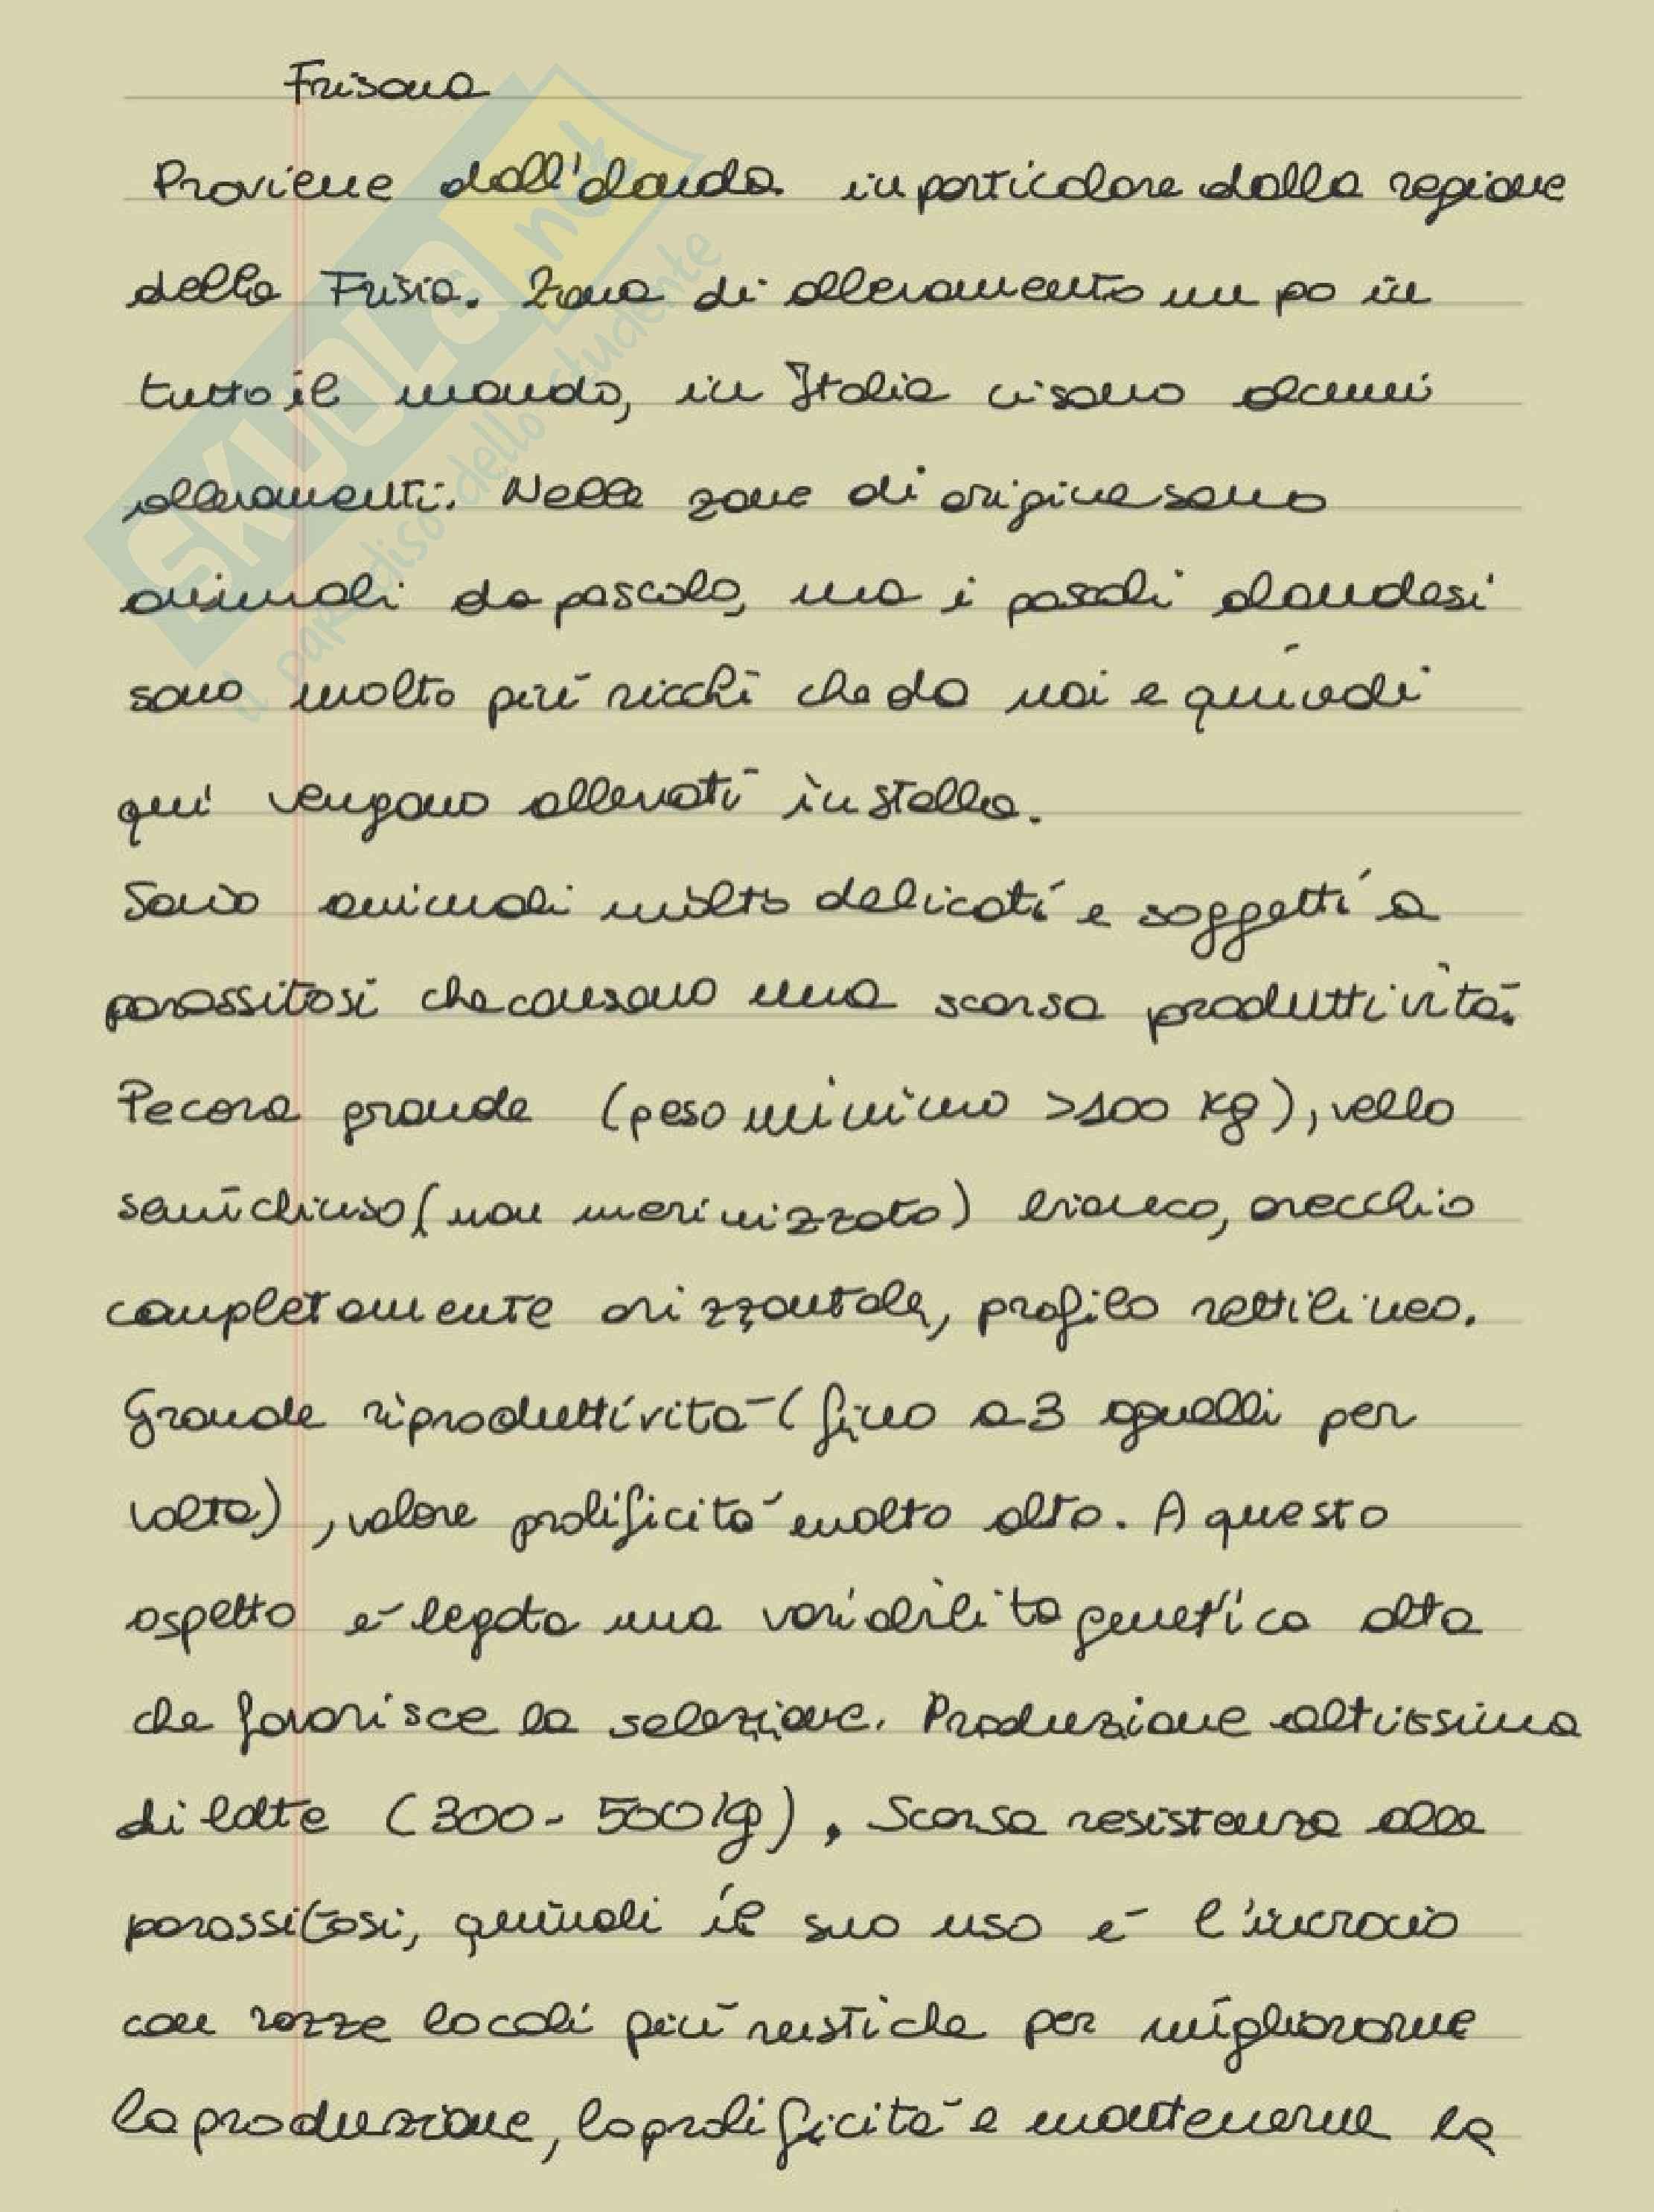 Frisona
Proviene dall'olanda in particolare dalla regione
della Frisia. Zona di allevamento un po in
tutto il mondo, in Italia ci sono alcuni
allevamenti. Nelle zone di origine sono
animali da pascolo, ma i pascoli olandesi
sono molto più ricchi che da noi e quindi
qui vengono allevati in stalla.
Sono animali molto delicati e soggetti a
parassitosi che causano una scarsa produttività.
Pecora grande (peso minimo >100 kg), vello
semichiuso (non merinizzato) bianco, orecchio
completamente orizzontale, profilo rettilineo.
Grande riproduttività (fino a 3 agnelli per
volta), valore prolificità molto alto. A questo
aspetto è legata una variabilità genetica alta
che favorisce la selezione. Produzione altissima
di latte (300-500kg). Scarsa resistenza alle
parassitosi, quindi il suo uso è l'incrocio
con razze locali più rustiche per migliorarne
la produzione, la prolificità e mantenerne la
SKUOLA.net
il paradiso dello studente